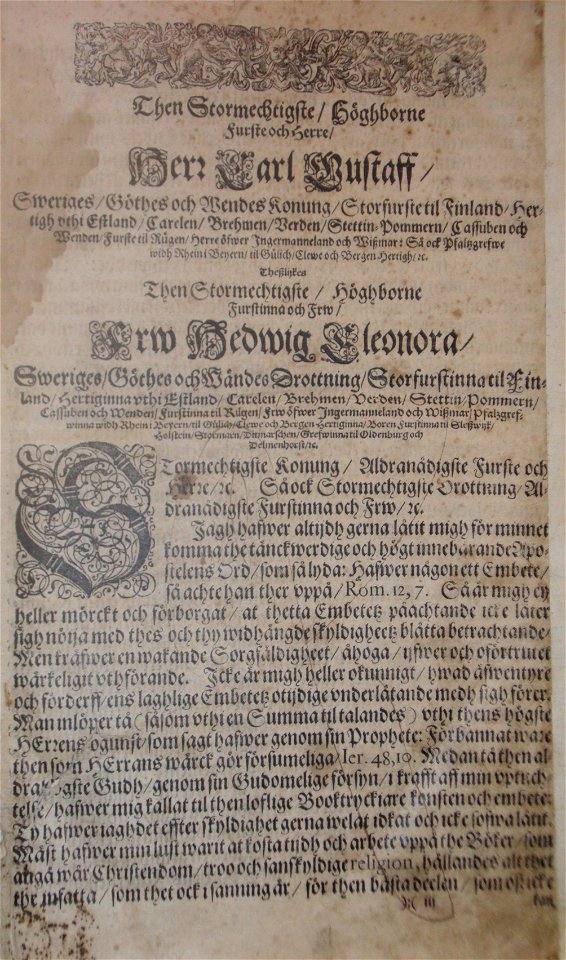 Then Stormechtigste / Höghborne
Furste och Herre /
Herr Carl Gustaff /
Sweriges / Göthes och Wendes Konung / Storfurste til Finland / Her-
tigh vthi Estland / Carelen / Brehmen / Verden / Stettin-Pommern / Cassuben och
Wenden / Furste til Rügen / Herre öfwer Ingermanneland och Wißmar: Så ock Pfaltzgrefwe
widh Rhein i Beyern / til Gülich / Clewe och Bergen Hertigh / ꝛc.
Theßlijkes
Then Stormechtigste / Höghborne
Furstinna och Frw /
Frw Hedwig Eleonora /
Sweriges / Göthes och Wändes Drottning / Storfurstinna til Fin-
land / Hertiginna vthi Estland / Carelen / Brehmen / Verden / Stettin / Pommern /
Cassuben och Wenden / Furstinna til Rügen / Frw öfwer Ingermanneland och Wißmar / Pfalzgref-
winna widh Rhein i Beyern / til Gülich / Clewe och Bergen Hertiginna / Boren Furstinna til Sleßwijk /
Holstein / Stormarn / Ditmarschen / Grefwinna til Oldenburg och
Delmenhorst / ꝛc.
STormechtigste Konung / Aldranådigste Furste och
Herre / ꝛc. Så ock Stormechtigste Drottning / Al-
dranådigste Furstinna och Frw / ꝛc.
Jagh hafwer altijdh gerna lätit migh för minnet
komma the tänckwerdige och högt innebärande Apo-
stelens Ord / som så lyda: Hafwer någon ett Embete /
så achte han ther vppå / Rom. 12, 7. Så är migh ey
heller mörckt och förborgat / at thetta Embetetz påachtande icke läter
sigh nöija med thes och thy widhängde skyldigheetz blåtta betrachtande.
Men kräfwer en wakande Sorgfäldigheet / åhoga / ijfwer och oförtrutet
wärkeligit vthförande. Icke är migh heller okunnigt / hwad äfwentyre
och förderff / ens laghlige Embetetz otijdige vnderlåtande medh sigh förer.
Man inlöper tå (såsom vthi en Summa til talandes) vthi thens högste
HErrens ogunst / som sagt hafwer genom sin Prophete: Förbannat ware
then som HErrans wärck gör försumeliga / Ier. 48, 10. Medan tå then al-
dra högste Gudh / genom sin Gudomelige försyn / i krafft aff min vptuch-
telse / hafwer mig kallat til then loflige Booktryckiare konsten och embete:
Ty hafwer iagh det effter skyldighet gerna welat idkat och icke sofwa lätit.
Mäst hafwer min lust warit at kosta tijdh och arbete vppå the Böker / som
angå wår Christendom / troo och sanskyldige religion, hållandes alt thet
the infatta / som thet ock i sanning är / för then bästa deelen / som oß icke
):( iii kan